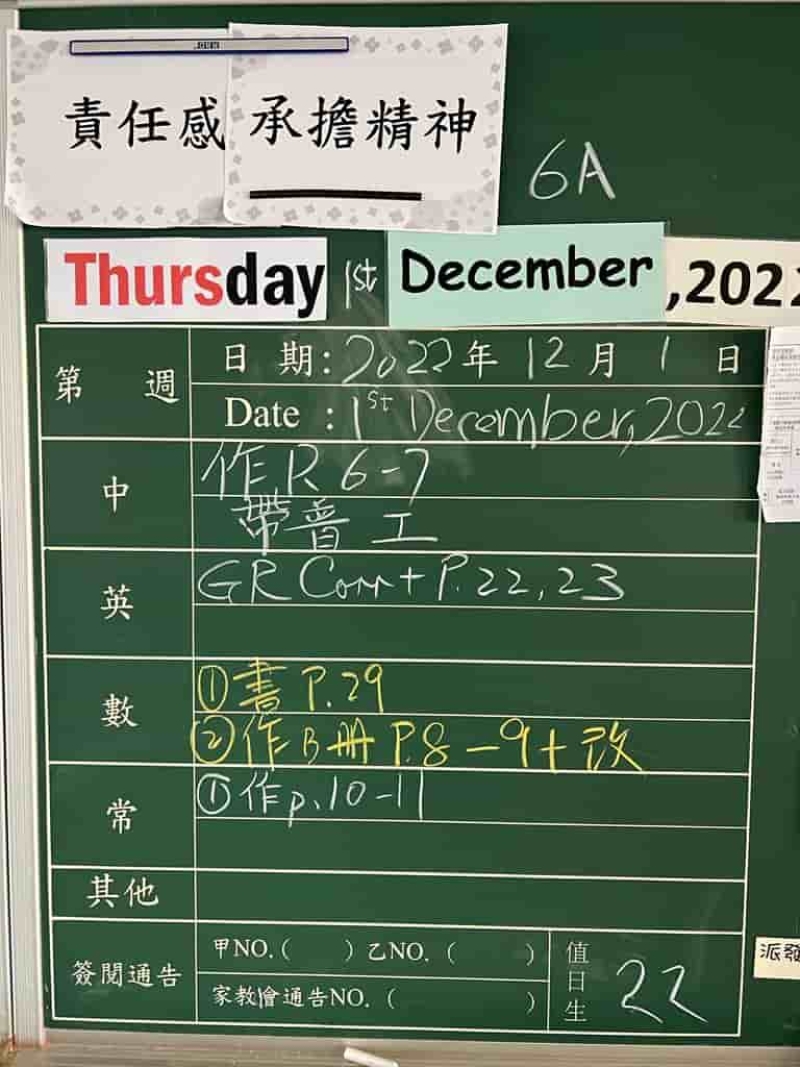 責任感 承擔精神
6A
Thursday 1st December, 2022
第 週
日 期: 2022年 12月 1 日
Date : 1st December, 2022
中
作 P. 6-7
帶普工
英
GR Corr + P. 22, 23
數
①書 P.29
②作B冊 P.8-9+改
常
①作p.10-11
其他
簽閱通告
甲NO.( ) 乙NO. ( )
家教會通告NO. ( )
值日生
22
派發